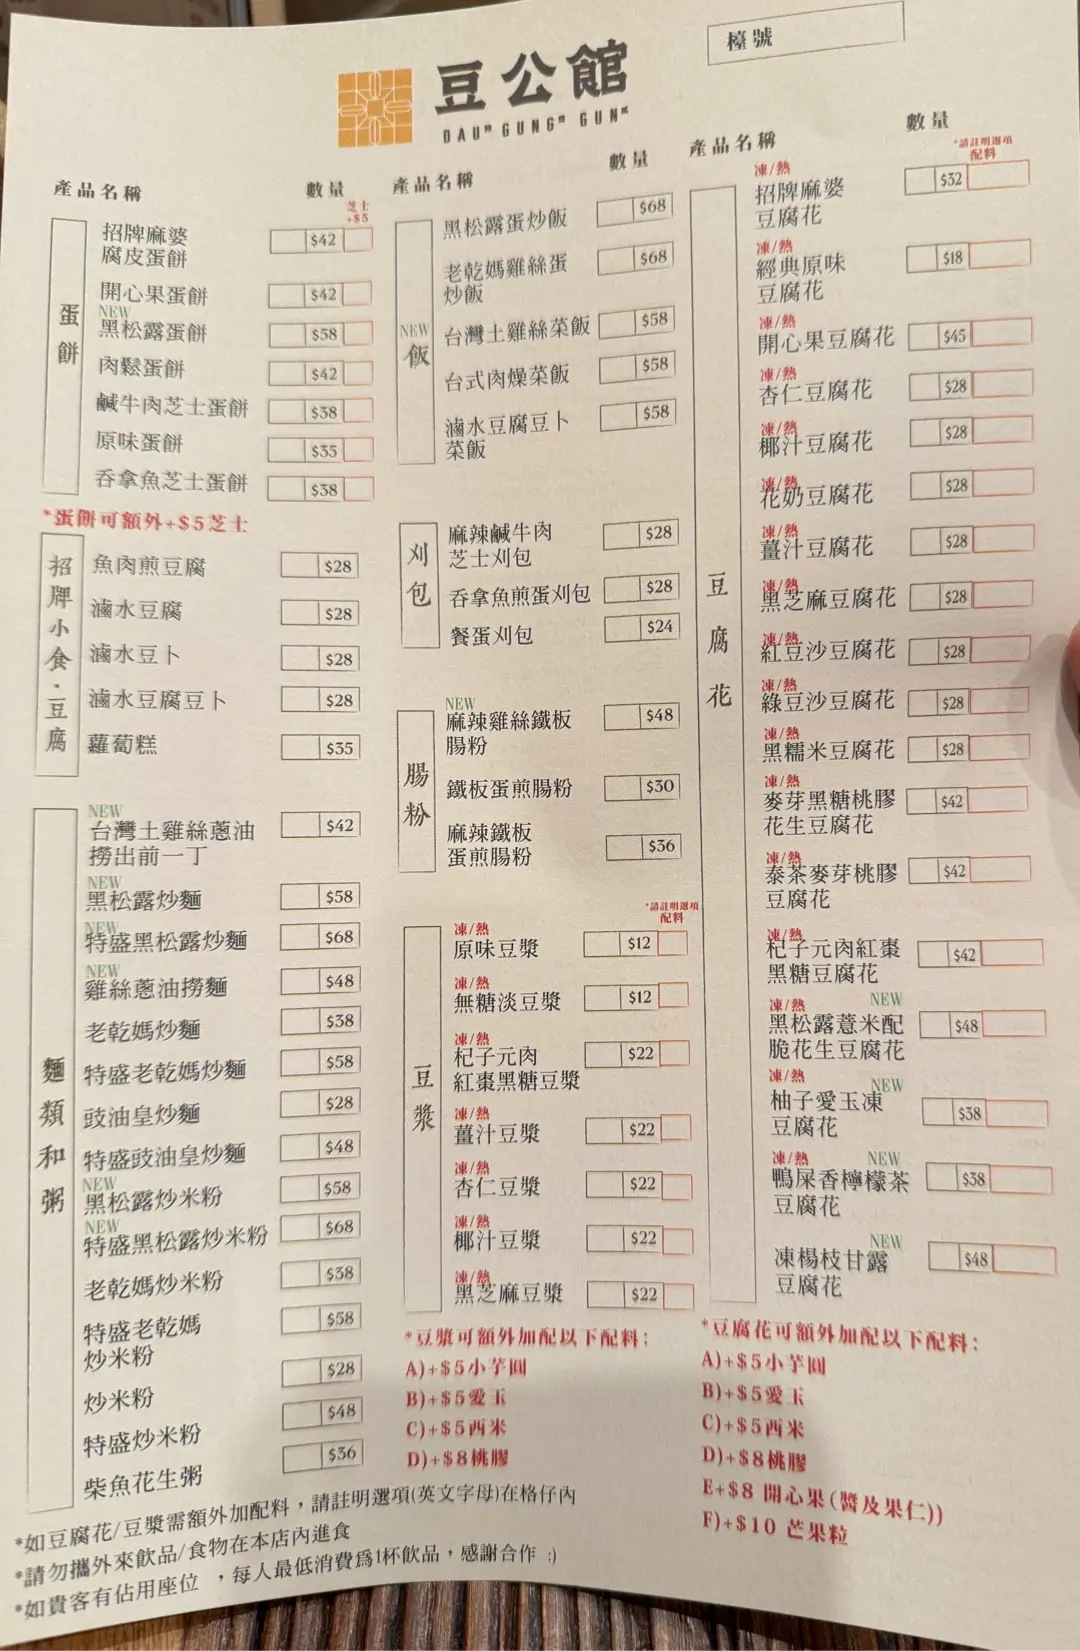 檯號
豆公館
DAU GUNG GUN
產品名稱
數量
芝士
+$5
蛋餅
招牌麻婆
腐皮蛋餅
$42
開心果蛋餅
$42
NEW
黑松露蛋餅
$58
肉鬆蛋餅
$42
鹹牛肉芝士蛋餅
$38
原味蛋餅
$35
吞拿魚芝士蛋餅
$38
*蛋餅可額外+$5芝士
招牌小食·豆腐
魚肉煎豆腐
$28
滷水豆腐
$28
滷水豆卜
$28
滷水豆腐豆卜
$28
蘿蔔糕
$35
麵類和粥
NEW
台灣土雞絲蔥油
撈出前一丁
$42
NEW
黑松露炒麵
$58
NEW
特盛黑松露炒麵
$68
NEW
雞絲蔥油撈麵
$48
老乾媽炒麵
$38
特盛老乾媽炒麵
$58
豉油皇炒麵
$28
特盛豉油皇炒麵
$48
NEW
黑松露炒米粉
$58
NEW
特盛黑松露炒米粉
$68
老乾媽炒米粉
$38
特盛老乾媽
炒米粉
$58
炒米粉
$28
特盛炒米粉
$48
柴魚花生粥
$36
產品名稱
數量
NEW
飯
黑松露蛋炒飯
$68
老乾媽雞絲蛋
炒飯
$68
台灣土雞絲菜飯
$58
台式肉燥菜飯
$58
滷水豆腐豆卜
菜飯
$58
刈包
麻辣鹹牛肉
芝士刈包
$28
吞拿魚煎蛋刈包
$28
餐蛋刈包
$24
腸粉
NEW
麻辣雞絲鐵板
腸粉
$48
鐵板蛋煎腸粉
$30
麻辣鐵板
蛋煎腸粉
$36
*請註明選項
配料
豆漿
凍/熱
原味豆漿
$12
凍/熱
無糖淡豆漿
$12
凍/熱
杞子元肉
紅棗黑糖豆漿
$22
凍/熱
薑汁豆漿
$22
凍/熱
杏仁豆漿
$22
凍/熱
椰汁豆漿
$22
凍/熱
黑芝麻豆漿
$22
*豆漿可額外加配以下配料:
A)+$5小芋圓
B)+$5愛玉
C)+$5西米
D)+$8桃膠
產品名稱
數量
*請註明選項
配料
豆腐花
凍/熱
招牌麻婆
豆腐花
$32
凍/熱
經典原味
豆腐花
$18
凍/熱
開心果豆腐花
$45
凍/熱
杏仁豆腐花
$28
凍/熱
椰汁豆腐花
$28
凍/熱
花奶豆腐花
$28
凍/熱
薑汁豆腐花
$28
凍/熱
黑芝麻豆腐花
$28
凍/熱
紅豆沙豆腐花
$28
凍/熱
綠豆沙豆腐花
$28
凍/熱
黑糯米豆腐花
$28
凍/熱
麥芽黑糖桃膠
花生豆腐花
$42
凍/熱
泰茶麥芽桃膠
豆腐花
$42
凍/熱
杞子元肉紅棗
黑糖豆腐花
$42
凍/熱
NEW
黑松露薏米配
脆花生豆腐花
$48
凍/熱
NEW
柚子愛玉凍
豆腐花
$38
凍/熱
NEW
鴨屎香檸檬茶
豆腐花
$38
NEW
凍楊枝甘露
豆腐花
$48
*豆腐花可額外加配以下配料:
A)+$5小芋圓
B)+$5愛玉
C)+$5西米
D)+$8桃膠
E+$8 開心果(醬及果仁))
F)+$10 芒果粒
*如豆腐花/豆漿需額外加配料，請註明選項(英文字母)在格仔內
*請勿攜外來飲品/食物在本店內進食
*如貴客有佔用座位 ，每人最低消費為1杯飲品，感謝合作 :)